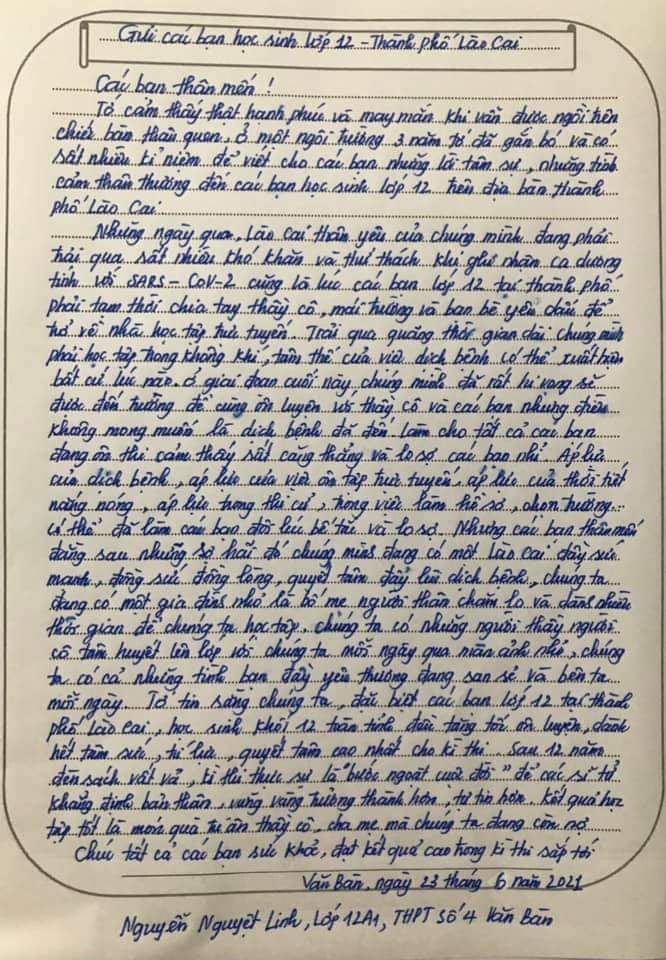 Gửi các bạn học sinh lớp 12 - Thành phố Lào Cai
Các bạn thân mến !
Tớ cảm thấy thật hạnh phúc và may mắn khi vẫn được ngồi trên
chiếc bàn thân quen, ở một ngôi trường 3 năm tớ đã gắn bó và có
rất nhiều kỉ niệm để viết cho các bạn những lời tâm sự, những tình
cảm thân thương đến các bạn học sinh lớp 12 trên địa bàn thành
phố Lào Cai
Những ngày qua, Lào Cai thân yêu của chúng mình đang phải
trải qua rất nhiều khó khăn và thử thách khi ghi nhận ca dương
tính với SARS - CoV-2 cũng là lúc các bạn lớp 12 tại thành phố
phải tạm thời chia tay thầy cô, mái trường và bạn bè yêu dấu để
trở về nhà học tập trực tuyến. Trải qua quãng thời gian dài chúng mình
phải học tập trong không khí, tâm thế của việc dịch bệnh có thể xuất hiện
bất cứ lúc nào. ở giai đoạn cuối này chúng mình đã rất hi vọng sẽ
được đến trường để cùng ôn luyện với thầy cô và các bạn nhưng điều
không mong muốn là dịch bệnh đã đến làm cho tất cả các bạn
đang ôn thi cảm thấy rất căng thẳng và lo sợ các bạn nhỉ. Áp lực
của dịch bệnh, áp lực của việc ôn tập trực tuyến, áp lực của thời tiết
nắng nóng, áp lực trong thi cử, trong việc làm hồ sơ, chọn trường..
có thể đã làm các bạn đôi lúc bế tắc và lo sợ. Nhưng các bạn thân mến
đằng sau những sợ hãi đó chúng mình đang có một Lào Cai đầy sức
mạnh, đồng sức đồng lòng, quyết tâm đẩy lùi dịch bệnh, chúng ta
đang có một gia đình nhỏ là bố mẹ người thân chăm lo và dành nhiều
thời gian để chúng ta học tập, chúng ta có những người thầy người
cô tâm huyết lên lớp với chúng ta mỗi ngày qua màn ảnh nhỏ, chúng
ta có cả những tình bạn đầy yêu thương đang san sẻ và bên ta
mỗi ngày. Tớ tin rằng chúng ta, đặc biệt các bạn lớp 12 tại thành
phố Lào Cai, học sinh khối 12 toàn tỉnh đều tăng tốc ôn luyện, dành
hết tâm sức, trí lực, quyết tâm cao nhất cho kì thi. Sau 12 năm
đèn sách vất vả, kì thi thực sự là "bước ngoặt cuộc đời" để các sĩ tử
khẳng định bản thân, vững vàng trưởng thành hơn, tự tin hơn. Kết quả học
tập tốt là món quà tri ân thầy cô, cha mẹ mà chúng ta đang còn nợ
Chúc tất cả các bạn sức khoẻ, đạt kết quả cao trong kì thi sắp tới
Văn Bàn, ngày 23 tháng 6 năm 2021
Nguyễn Nguyệt Linh, Lớp 12A1, THPT Số 4 Văn Bàn